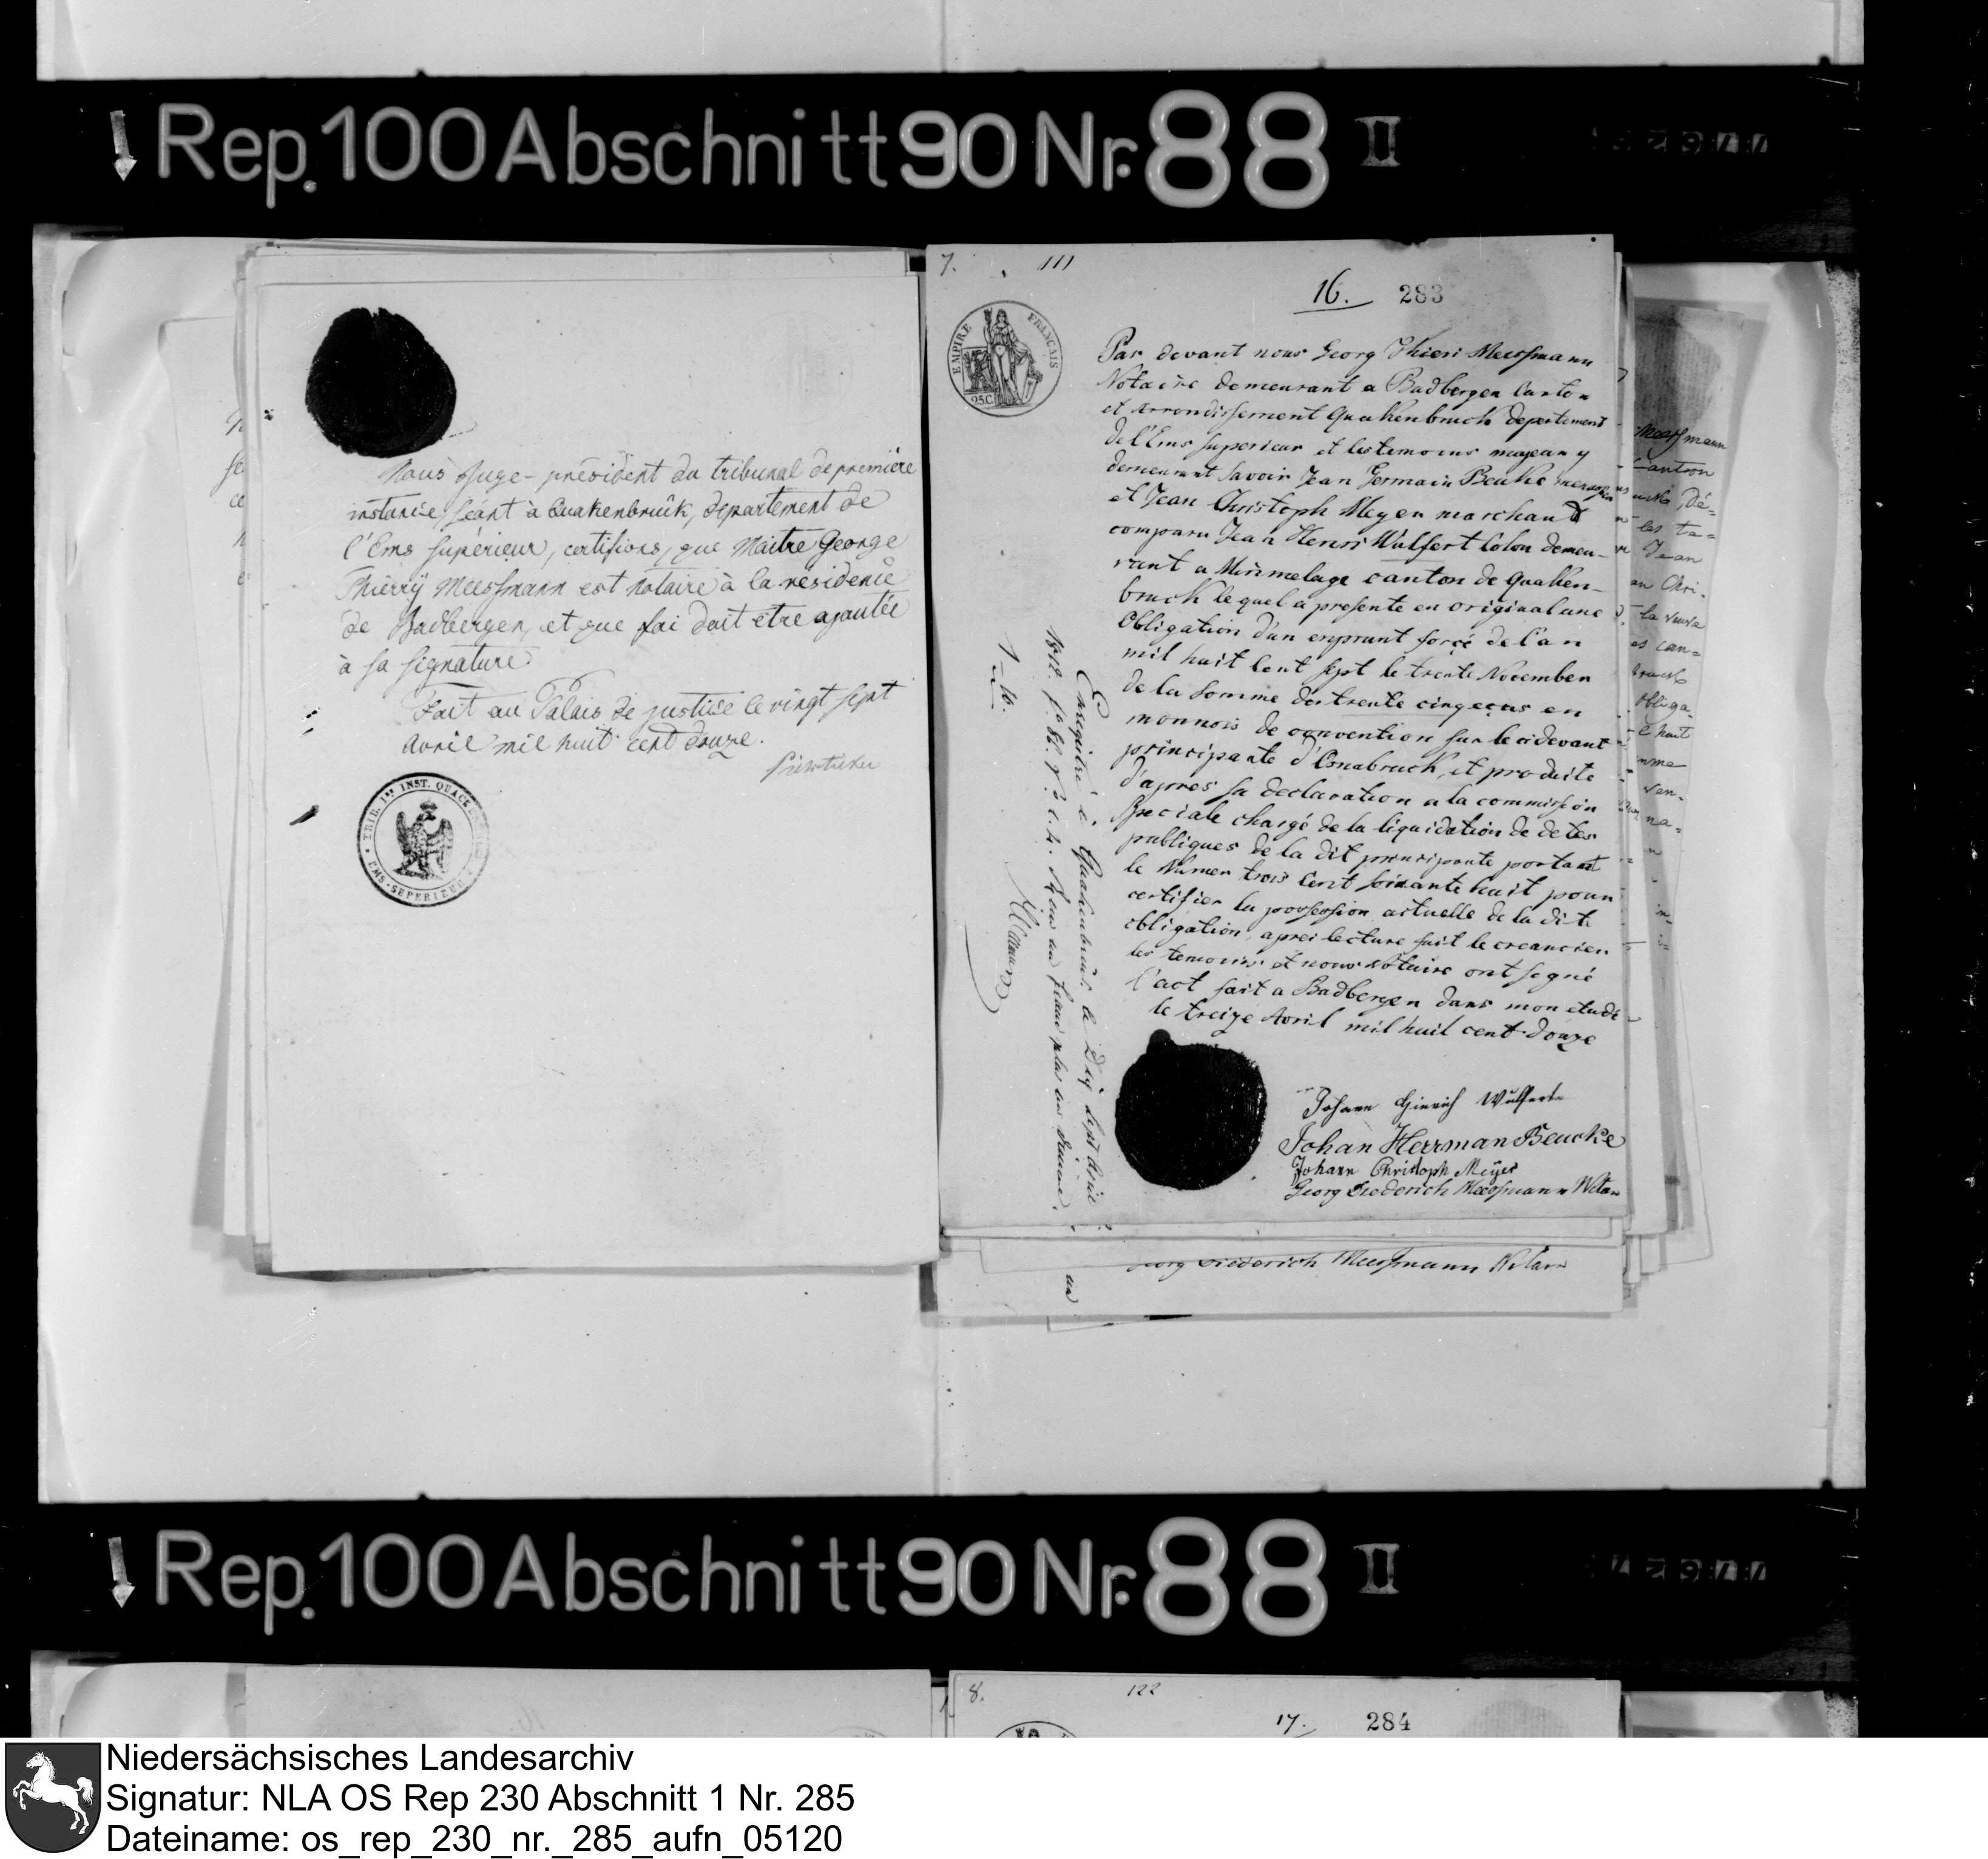 Rep. 100 Abschnitt 90 Nr. 88 II
Nous Juge-président du tribunal de première
instance séant à Quakenbrück, departement de
l'Ems supérieur, certifions, que Maitre George
Thierrÿ Meessmann est notaire à la residence
de Badbergen, et que foi doit etre ajoutée
à sa signature.
Fait au Palais de justice le vingt sept
avril mil huit cent douze.
TRIB. 1er INST. QUACKENBRUCK
EMS-SEPERIEUR
7.
111
16.
283
EMPIRE FRANÇAIS
25.C.
Par devant nous Georg Thieri Meessmann
Notaire demeurant a Badbergen Canton
et Arrondissement Quakenbruck departement
de l'Ems superieur et les temoins majeur y
demeurant savoir Jean Germain Beuke
et Jean Christoph Meyer marchand
comparu Jean Henri Wulfert Colon demeu-
rant a Mimmelage canton de Quaken-
bruck le quel a presente en original une
Obligation d'un enprunt forcé de l'an
mil huit Cent sept le trente November
de la somme de trente cinq ecus en
monnois de convention sur le cidevant
principaute d'Osnabruck, et produite
d'apres sa declaration a la commission
Speciale chargé de la liquidation de detes
publiques de la dit principaute portant
le Numer trois Cent soixante huit pour
certifier la possession actuelle de la dite
obligation, apres lecture fait le creancier
les temoins et nous Notaire ont segné
l'act fait a Badbergen dans mon etude
le treize Avril mil huit cent douze
Johann Hinrich Wulfert
Johan Herrman Beucke
Johann Christoph Meÿer
Georg Diederich Meessmann Notar
Enregistré à Quakenbrück le Dix sept Avril
1812. fo 86. Vo c. 4. Reçu un franc plus un décime.
1-10.
Meessmann
Canton
Dé-
les te-
Jean
Chri-
la veuve
can-
obliga-
huit
Diederich Meessmann Notar
Rep. 100 Abschnitt 90 Nr. 88 II
8.
122
17.
284
Niedersächsisches Landesarchiv
Signatur: NLA OS Rep 230 Abschnitt 1 Nr. 285
Dateiname: os_rep_230_nr._285_aufn_05120